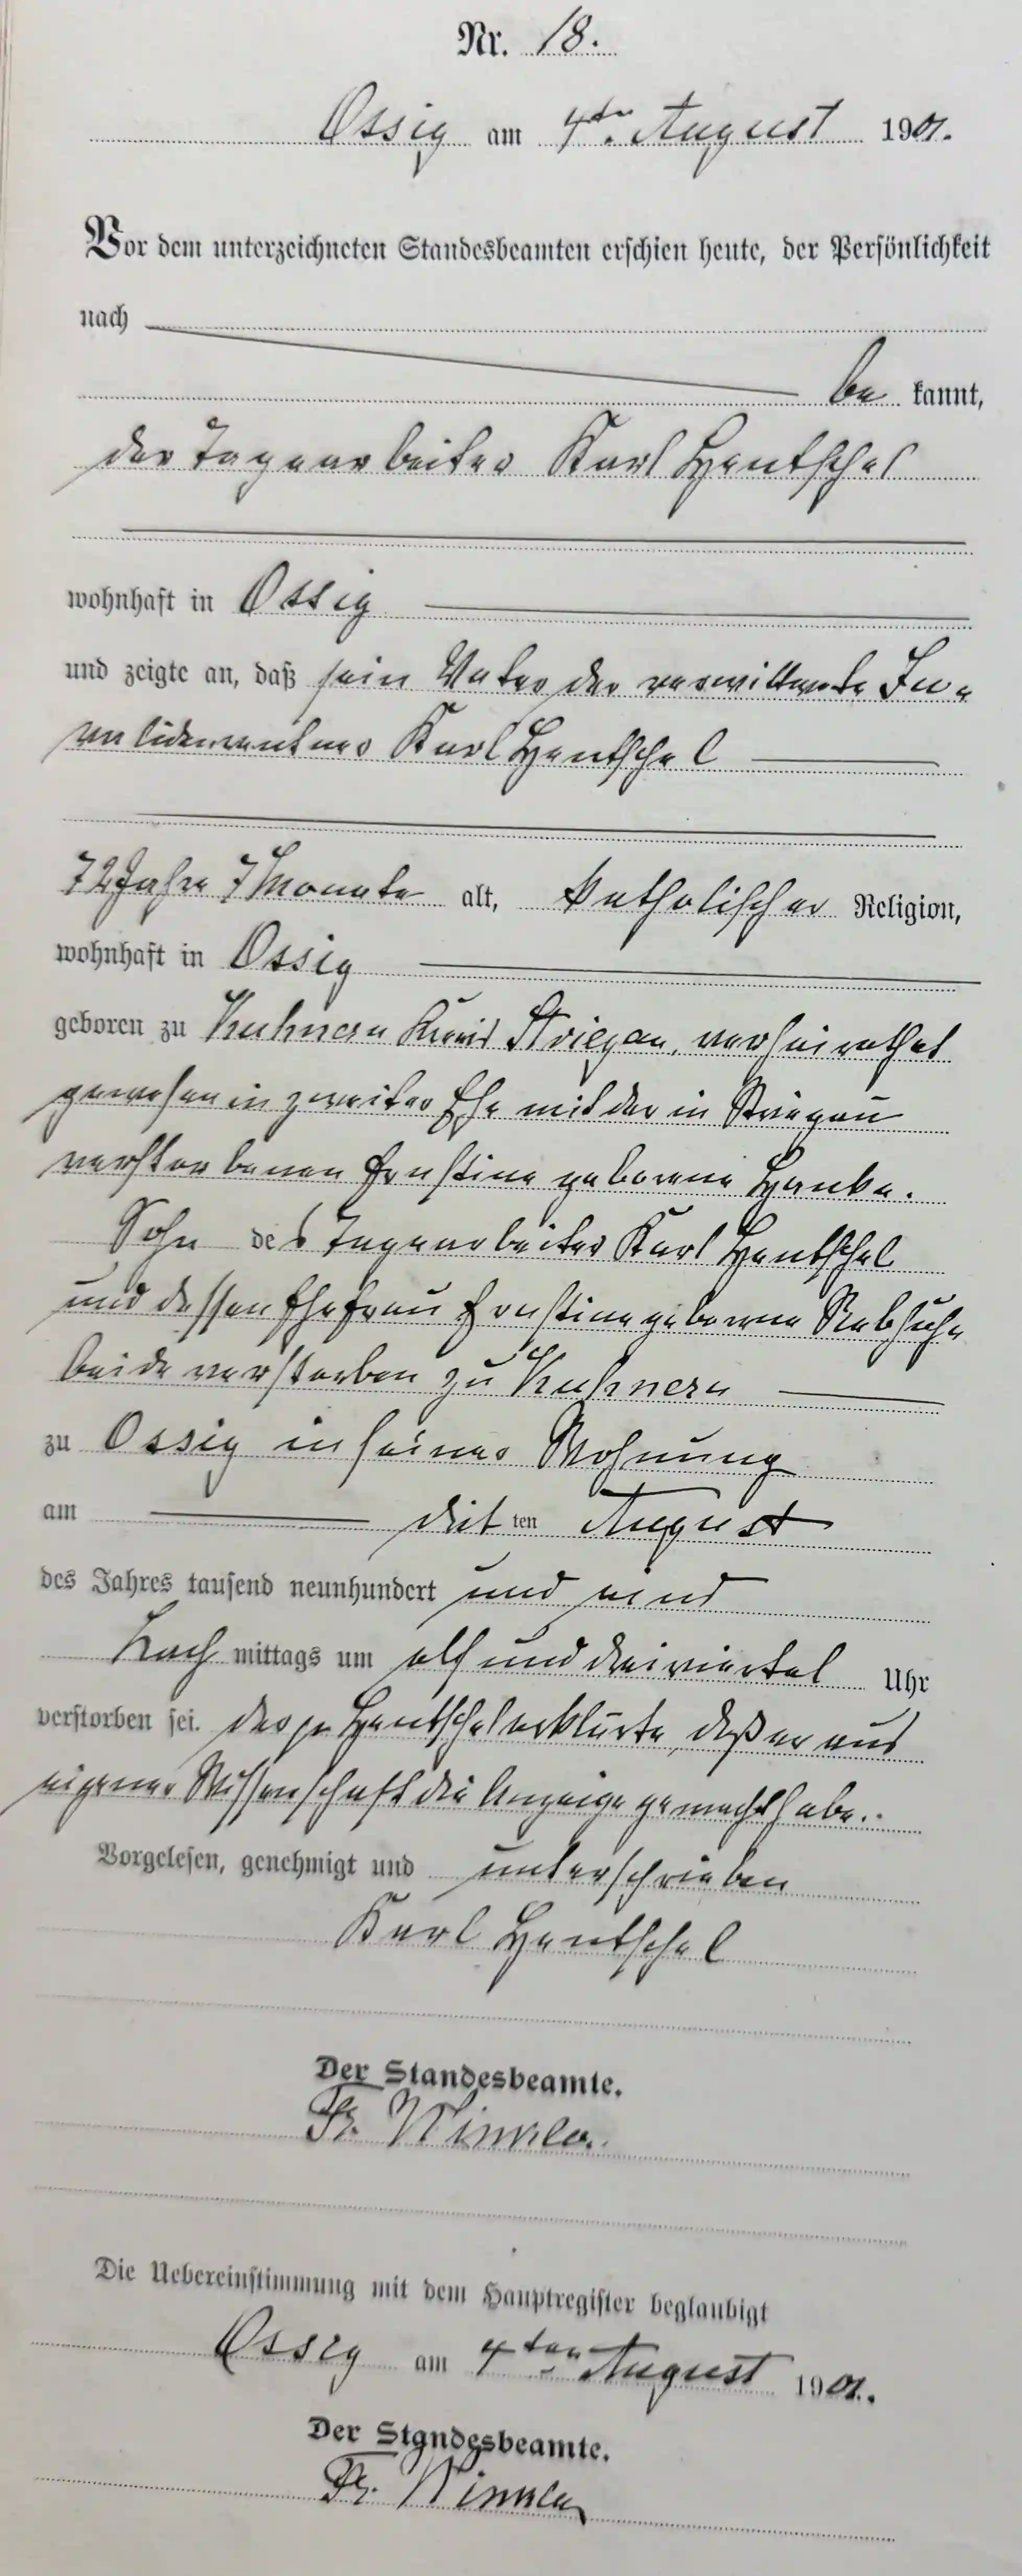 Nr. 18.
Ossig am 4ten August 1901.
Vor dem unterzeichneten Standesbeamten erschien heute, der Persönlichkeit
nach
be kannt,
der Tagearbeiter Karl Hentschel
wohnhaft in Ossig
und zeigte an, daß sein Vater der verwittwete In-
validenrentner Karl Hentschel
72 Jahre 7 Monate alt, katholischer Religion,
wohnhaft in Ossig
geboren zu Kuhnern Kreis Striegau, verheirathet
gewesen in zweiter Ehe mit der in Striegau
verstorbenen Ernstine geborene Hanke.
Sohn des Tagearbeiter Karl Hentschel
und dessen Ehefrau Ernstine geborene Rebhuhn
beide verstorben zu Kuhnern
zu Ossig in seiner Wohnung
am drit ten August
des Jahres tausend neunhundert und eins
Nach mittags um elf und dreiviertel Uhr
verstorben sei. Der p. Hentschel erklärte, daß er aus
eigener Wissenschaft die Anzeige gemacht habe.
Vorgelesen, genehmigt und unterschrieben
Karl Hentschel
Der Standesbeamte.
Fr. Winkler.
Die Uebereinstimmung mit dem Hauptregister beglaubigt
Ossig am 4ten August 1901.
Der Standesbeamte.
Fr. Winkler